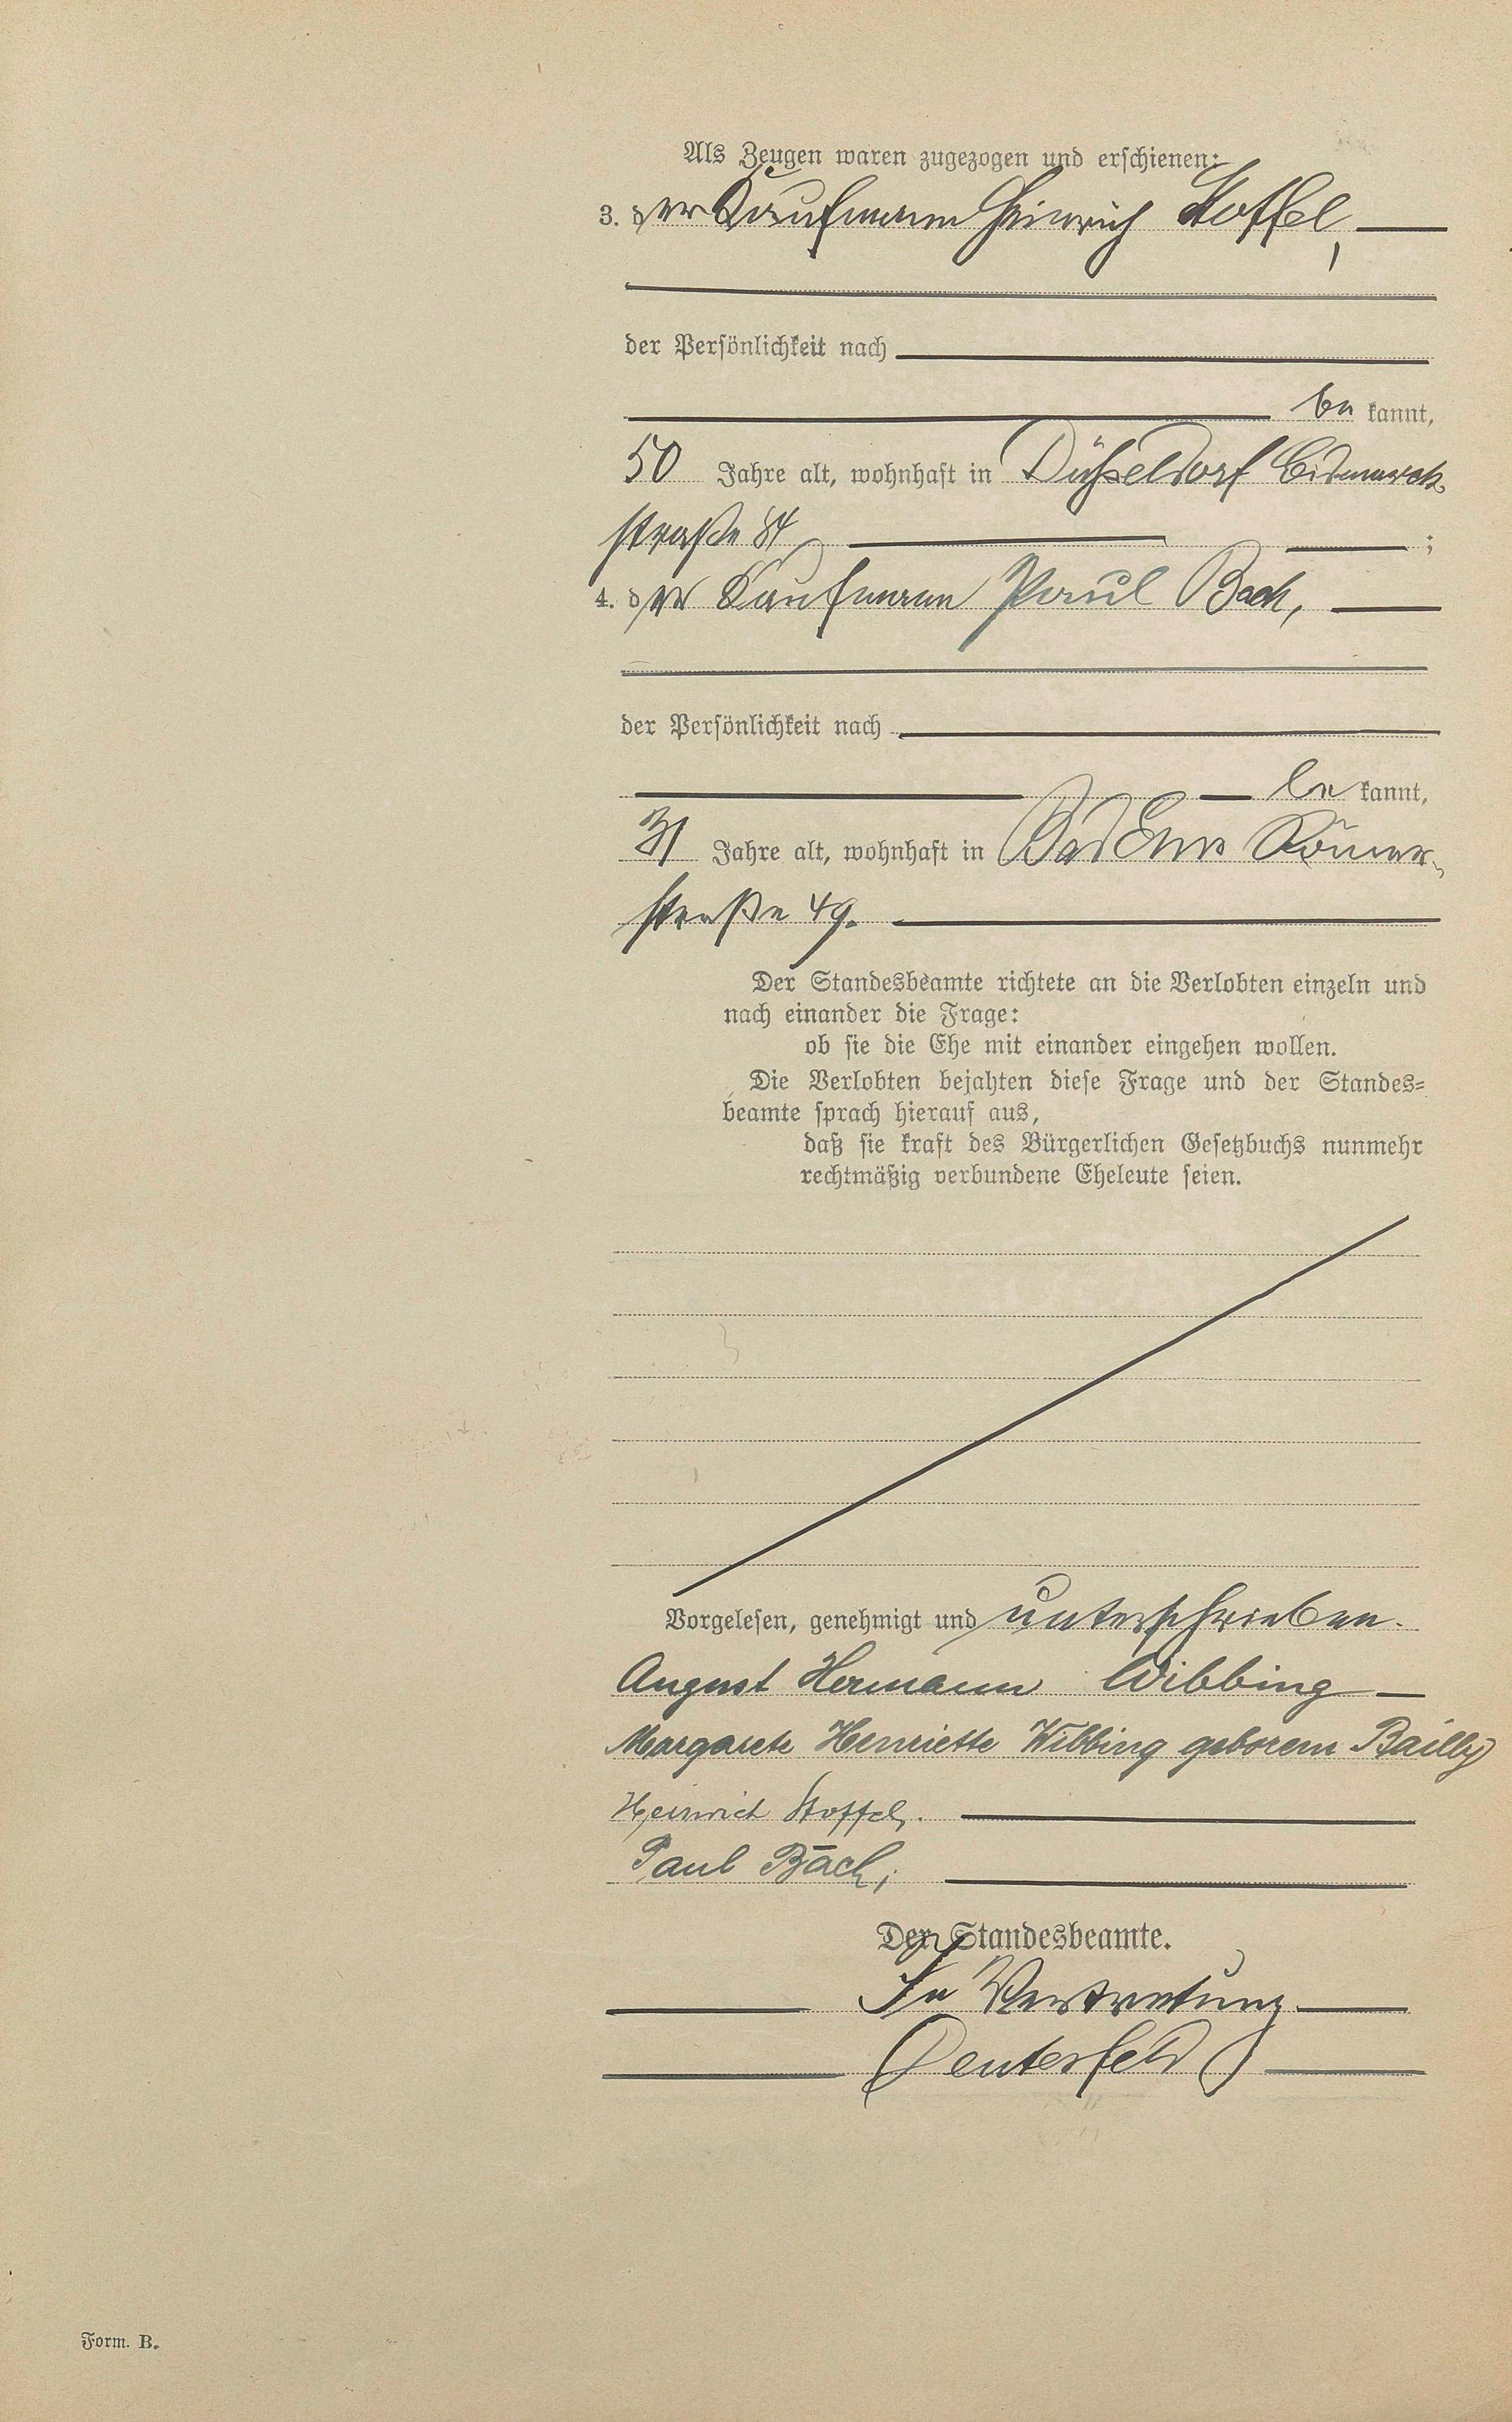 Als Zeugen waren zugezogen und erschienen:
3. der Kaufmann Heinrich Stoffel,
der Persönlichkeit nach
be kannt,
50 Jahre alt, wohnhaft in Düsseldorf Bismarck-
straße 84 ;
4. der Kaufmann Paul Bach,
der Persönlichkeit nach
be kannt,
31 Jahre alt, wohnhaft in Bad Ems Römer-
straße 49.
Der Standesbeamte richtete an die Verlobten einzeln und
nach einander die Frage:
ob sie die Ehe mit einander eingehen wollen.
Die Verlobten bejahten diese Frage und der Standes=
beamte sprach hierauf aus,
daß sie kraft des Bürgerlichen Gesetzbuchs nunmehr
rechtmäßig verbundene Eheleute seien.
Vorgelesen, genehmigt und unterschrieben.
August Hermann Wibbing
Margarete Henriette Wibbing geborene Bailly
Heinrich Stoffel.
Paul Bach,
Der Standesbeamte.
In Vertretung
Deutesfeld
Form. B.